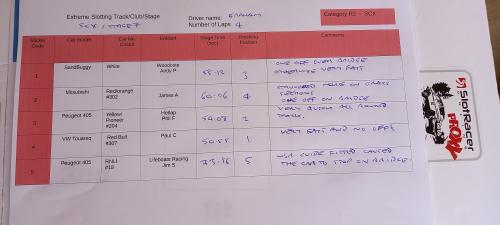 Extreme Slotting Track/Club/Stage
SCX / STAGE 7
Driver name: GRAHAM
Number of Laps 4
Category R2 - SCX
Marker Code
Car model
Car No Colour
Entrant
Stage Time (sec)
Finishing Position
Comments
1 SandBuggy White Woodcote Andy P 55.12 3 ONE OFF OVER BRIDGE OTHERWISE VERY FAST
2 Mitsubishi Red/orange #302 James A 60.06 4 SECTIONS ONE OFF ON BRIDGE
3 Peugeot 405 Yellow/ Pioneer #204 Hollap Phil F 54.08 2 VERY QUICK ALL ROUND TRACK.
4 VW Touareg Red Bull #307 Paul C 50.55 1 VERY FAST AND NO OFFS
5 Peugeot 405 RNLI #18 Lifeboats Racing Jim S 73.86 5 GUIDE FITTED CAUSED THE CAR TO STOP ON BRIDGE.
SlotRacer
FROM